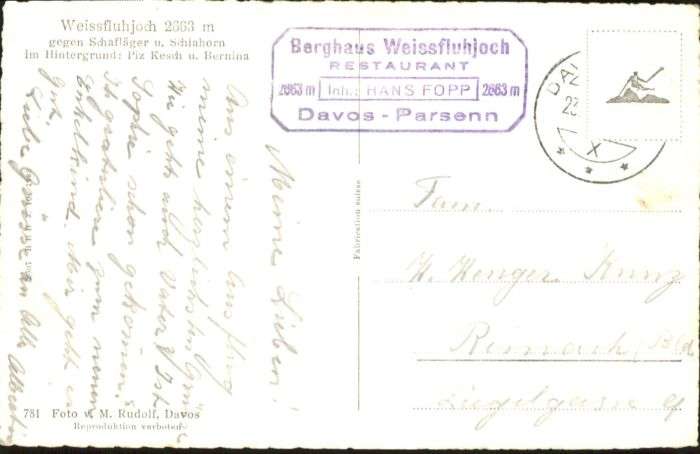 Weissfluhjoch 2663 m
gegen Schafläger u. Schiahorn
Im Hintergrund: Piz Kesch u. Bernina
Berghaus Weissfluhjoch
RESTAURANT
2663 m Inh.: HANS FOPP 2663 m
Davos - Parsenn
DA
X
Meine Lieben!
Aus einem Ausflug
meine herzlichsten Grüsse
Wie geht auch Vater? Ist
Sophie schon gekommen?
Ich gratuliere zum neuen
Enkelkind. Mir geht es
gut.
Liebe Grüsse an Alle
Fabrication suisse
Fam.
H. Wenger Kunz
Reinach (Bld
Ziegelgasse 9
781 Foto v. M. Rudolf, Davos
Reproduktion verboten